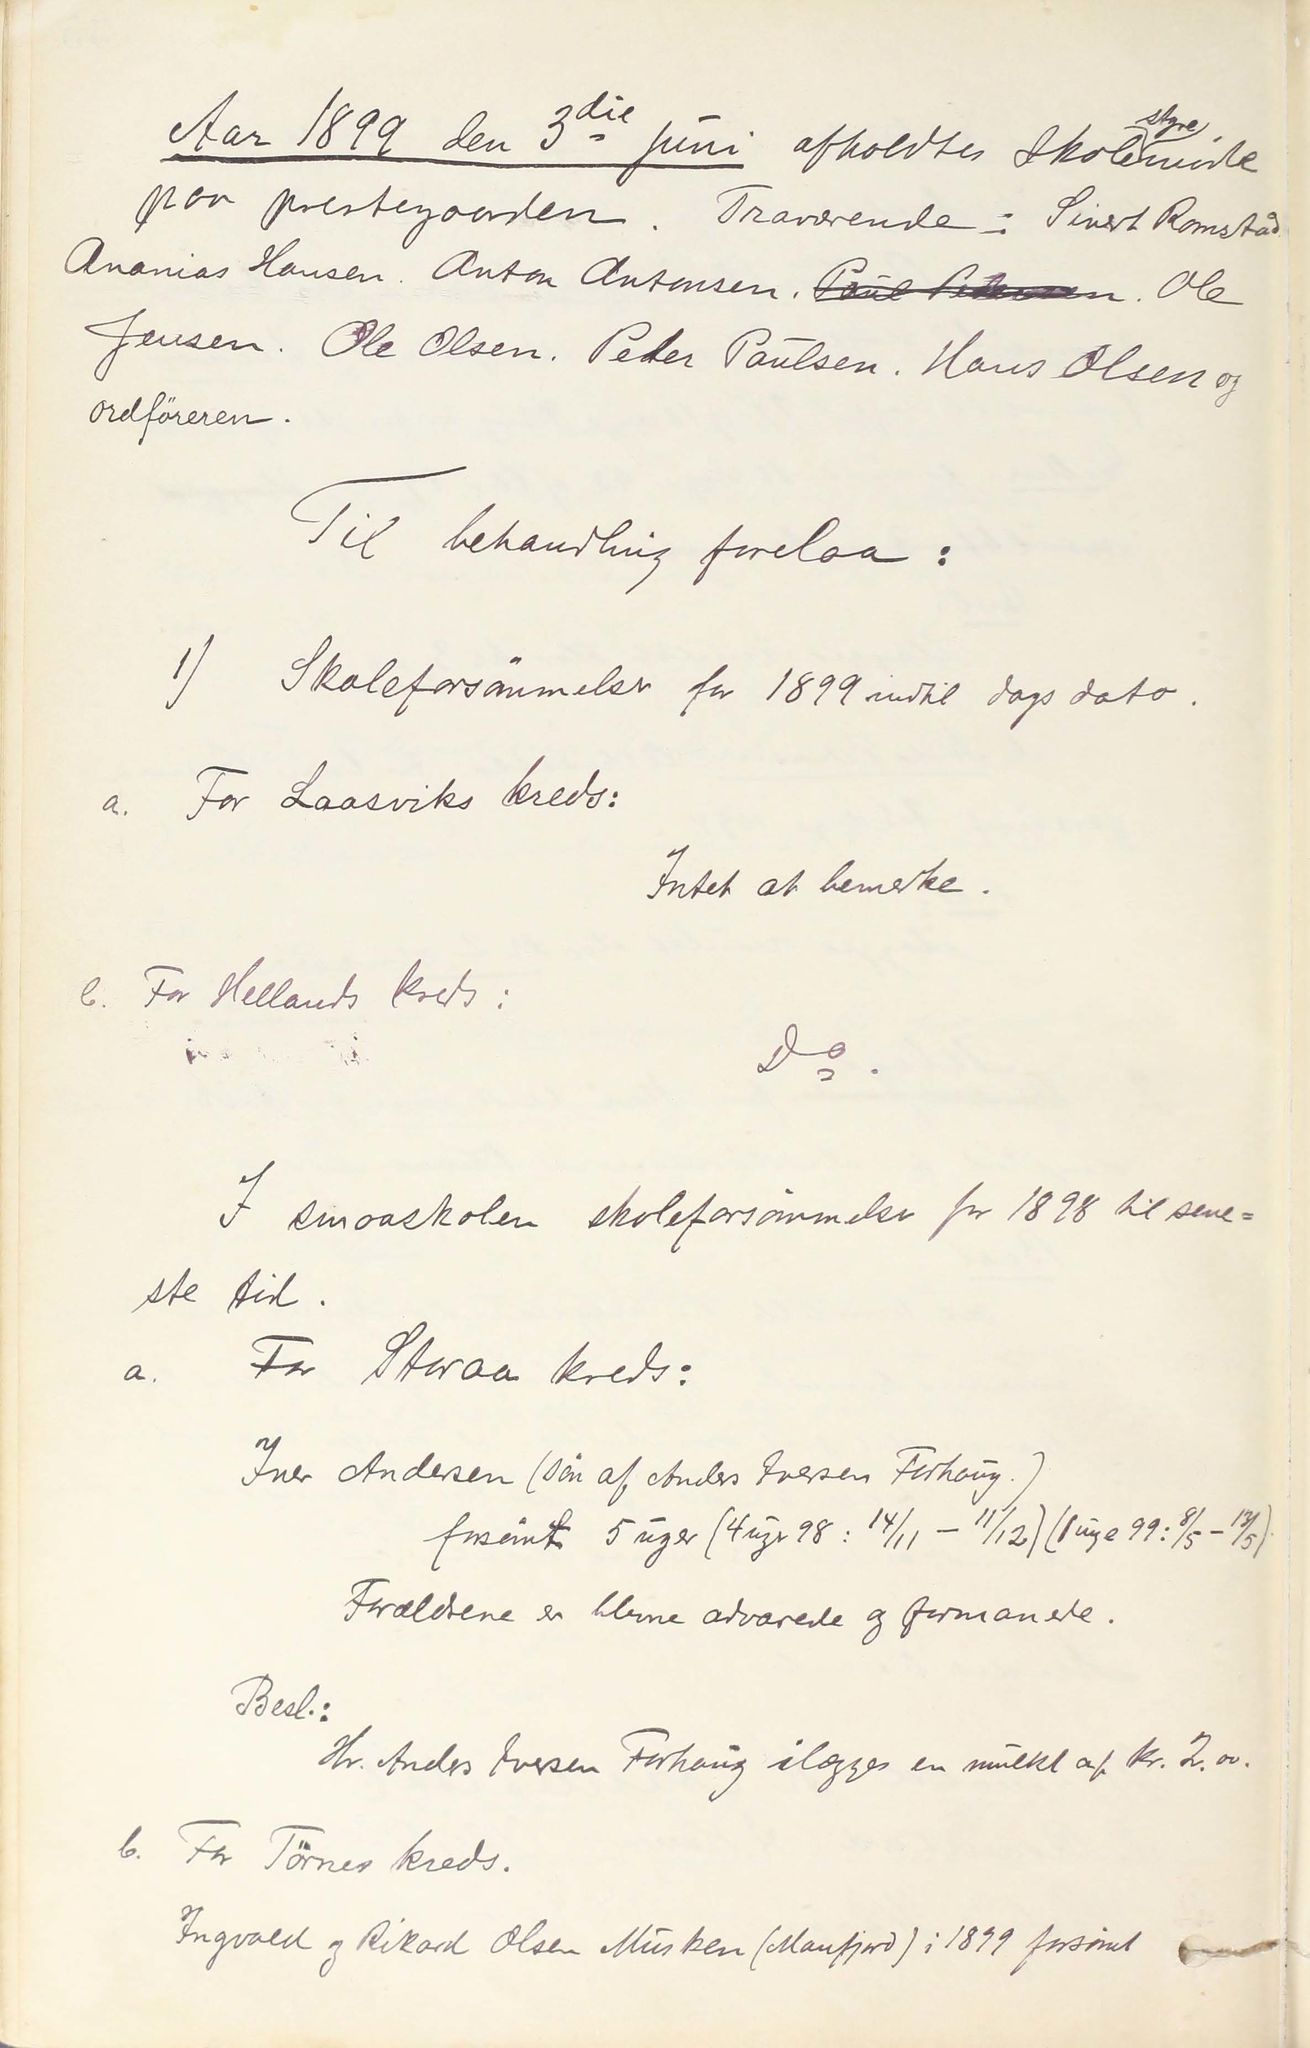 Aar 1899 den 3die juni afholdtes skolestyremöde
paa prestegaarden. Tilstedeværende: Sivert Romstad
Ananias Hansen. Anton Antonsen. Paul Petersen. Ole
Jensen. Ole Olsen. Peder Paulsen. Hans Olsen og
ordföreren.
Til behandling forelaa:
1) Skoleforsömmelser for 1899 indtil dags dato.
a. For Laasviks kreds:
Intet at bemerke.
b. For Hellands kreds:
Do.
I smaaskolen skoleforsömmelser for 1898 til sene=
ste tid.
a. For Storaa kreds:
Iver Andersen (sön af Anders Iversen Forhaug.)
forsömt 5 uger (4 uger 98: 14/11 – 11/12) (1 uge 99: 8/5 – 13/5).
Forældrene er blevne advarede og formanede.
Besl.:
Hr. Anders Iversen Forhaug ilægges en mulkt af kr. 2.00.
b. For Törnes kreds.
Ingvald og Rikard Olsen Musken (Manfjord) i 1899 forsömt